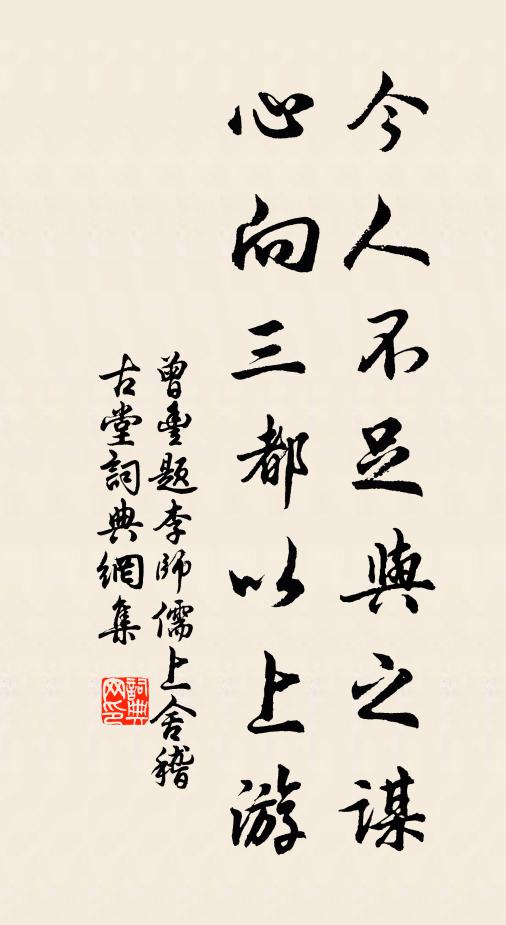 今人不足與之謀
心向三都以上游
曾豐題李師儒上舍稽
古堂詞典網集
詞典網印